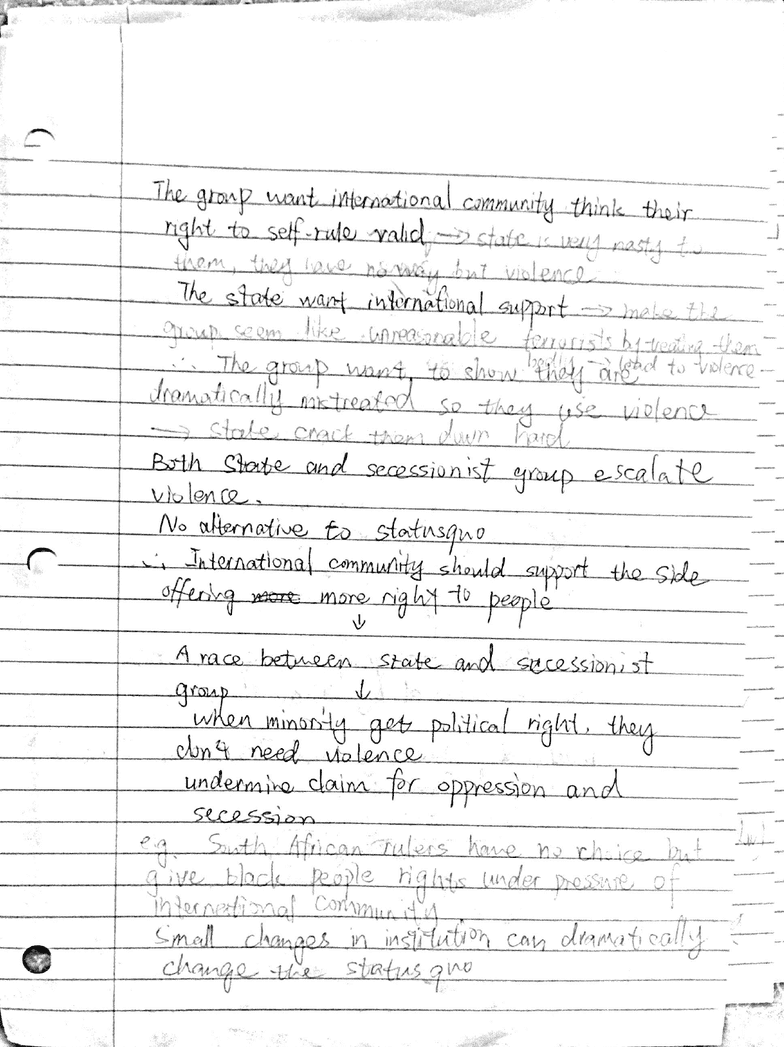 The group want international community think their
right to self-rule valid → state is very nasty to
them, they have no way but violence
The state want international support → make the
group seem like unreasonable terrorists by treating them
badly → lead to violence
∴ The group want to show they are
dramatically mistreated so they use violence
→ state crack them down hard
Both State and secessionist group escalate
violence.
No alternative to statusquo
∴ International community should support the side
offering more more right to people
↓
A race between state and secessionist
group ↓
when minority get political right, they
don't need violence
undermine claim for oppression and
secession
e.g. South African rulers have no choice but
give black people rights under pressure of
international community
Small changes in institution can dramatically
change the status quo